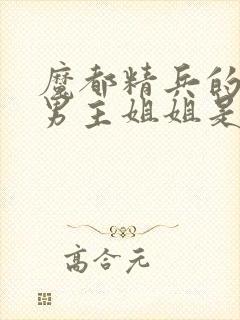 魔都精兵的
男主姐姐是
高合元